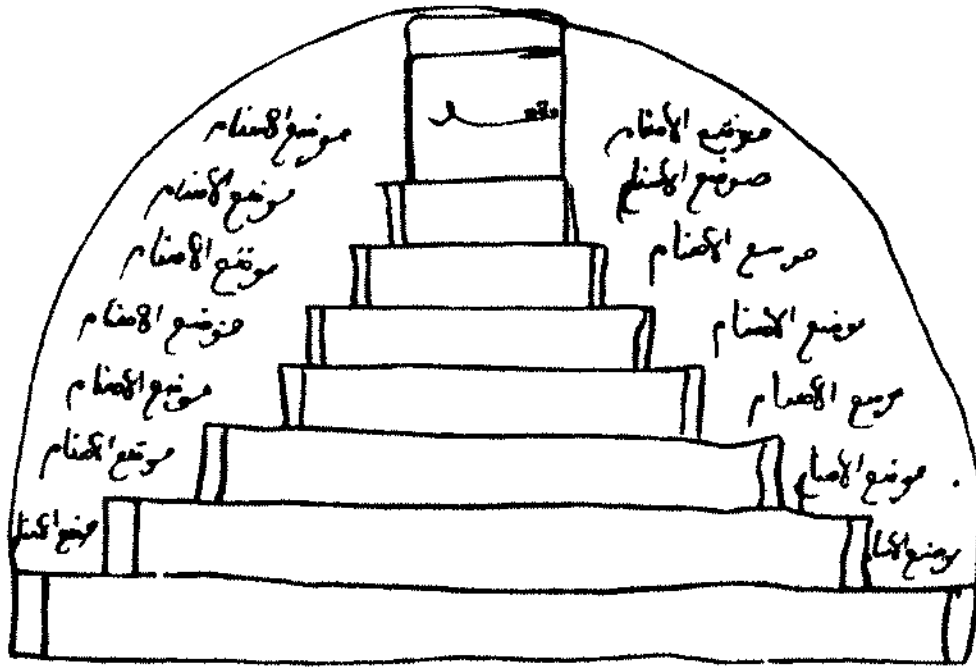 موضع الأصنام
موضع الأصنام
موضع الأصنام
موضع الأصنام
موضع الأصنام
موضع الأصنام
موضع الأصنام
موضع الأصنام
موضع الأصنام
موضع الأصنام
موضع الأصنام
موضع الأصنام
موضع الأصنام
موضع الأصنام